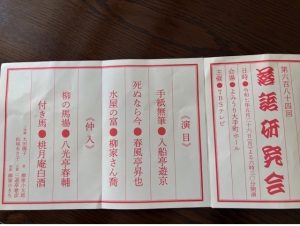 第六百八十四
落語研究会
日時●令和
会場●よみうり大手町ホール
主催●TBSテレビ
《演目》
手紙無筆●入船亭遊京
死ぬなら今●春風亭昇也
水屋の富●柳家さん喬
《仲入》
柳の馬場●八光亭春輔
付き馬●桃月庵白酒